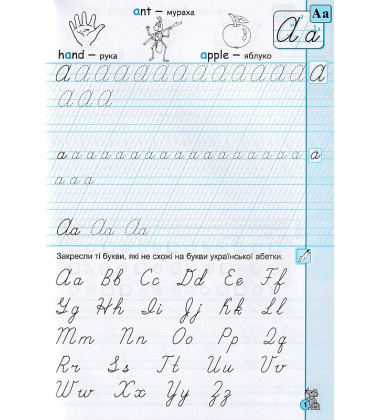 ant – мураха
Aa
Aa
hand – рука
apple – яблуко
a a a a a a a a a a a a a a a a
a a a
a a a a a a a a a a a a a a a a a a
a a a
Aa Aa Aa
Закресли ті букви, які не схожі на букви української абетки.
Aa Bb Cc Dd Ee Ff
Gg Hh Ii Jj Kk Ll
Mm Nn Oo Pp Qq
Rr Ss Tt Uu Vv
Ww Xx Yy Zz
1